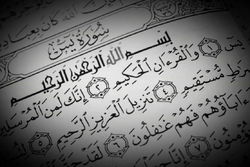 كَانَ بِعِبَادِهِ
سُورَةُ يسٓ
بِسْمِ اللَّهِ الرَّحْمَٰنِ الرَّحِيمِ
١ وَالْقُرْءَانِ الْحَكِيمِ ٢ إِنَّكَ لَمِنَ الْمُرْسَلِينَ
طٍ مُّسْتَقِيمٍ ٤ تَنزِيلَ الْعَزِيزِ الرَّحِيمِ ٥
ءَابَآؤُهُمْ فَهُمْ غَٰفِلُونَ ٦ لَقَدْ